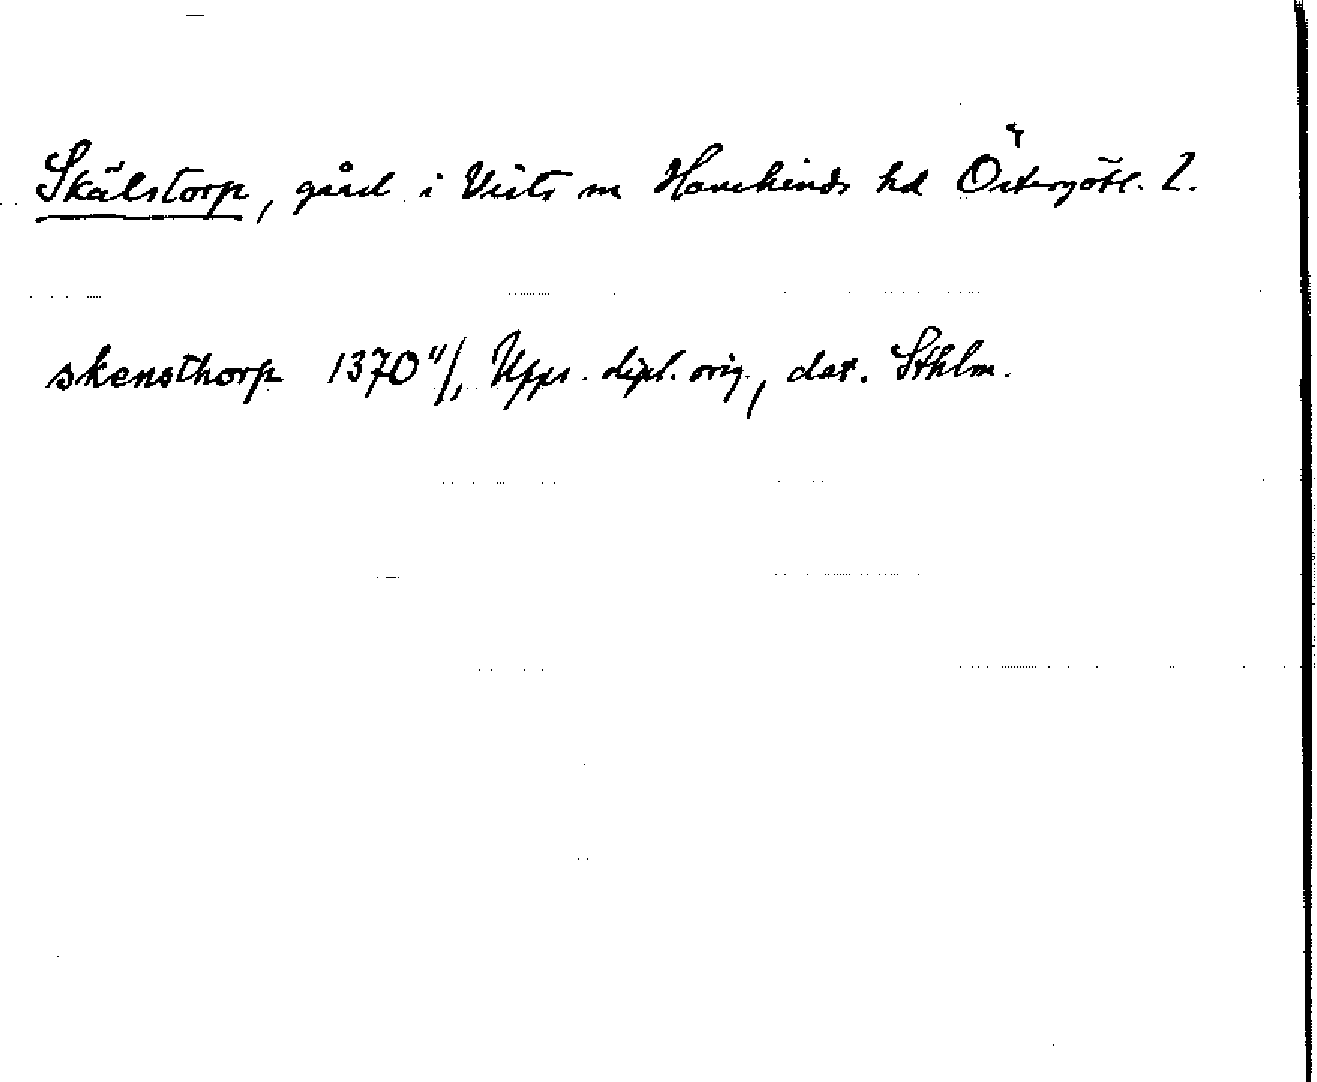 Skälstorp, gård i Vists sn Hanekinds hd Östergötl. l.
skensthorp 1370 11/1 Upps. dipl. orig., dat. Sthlm.